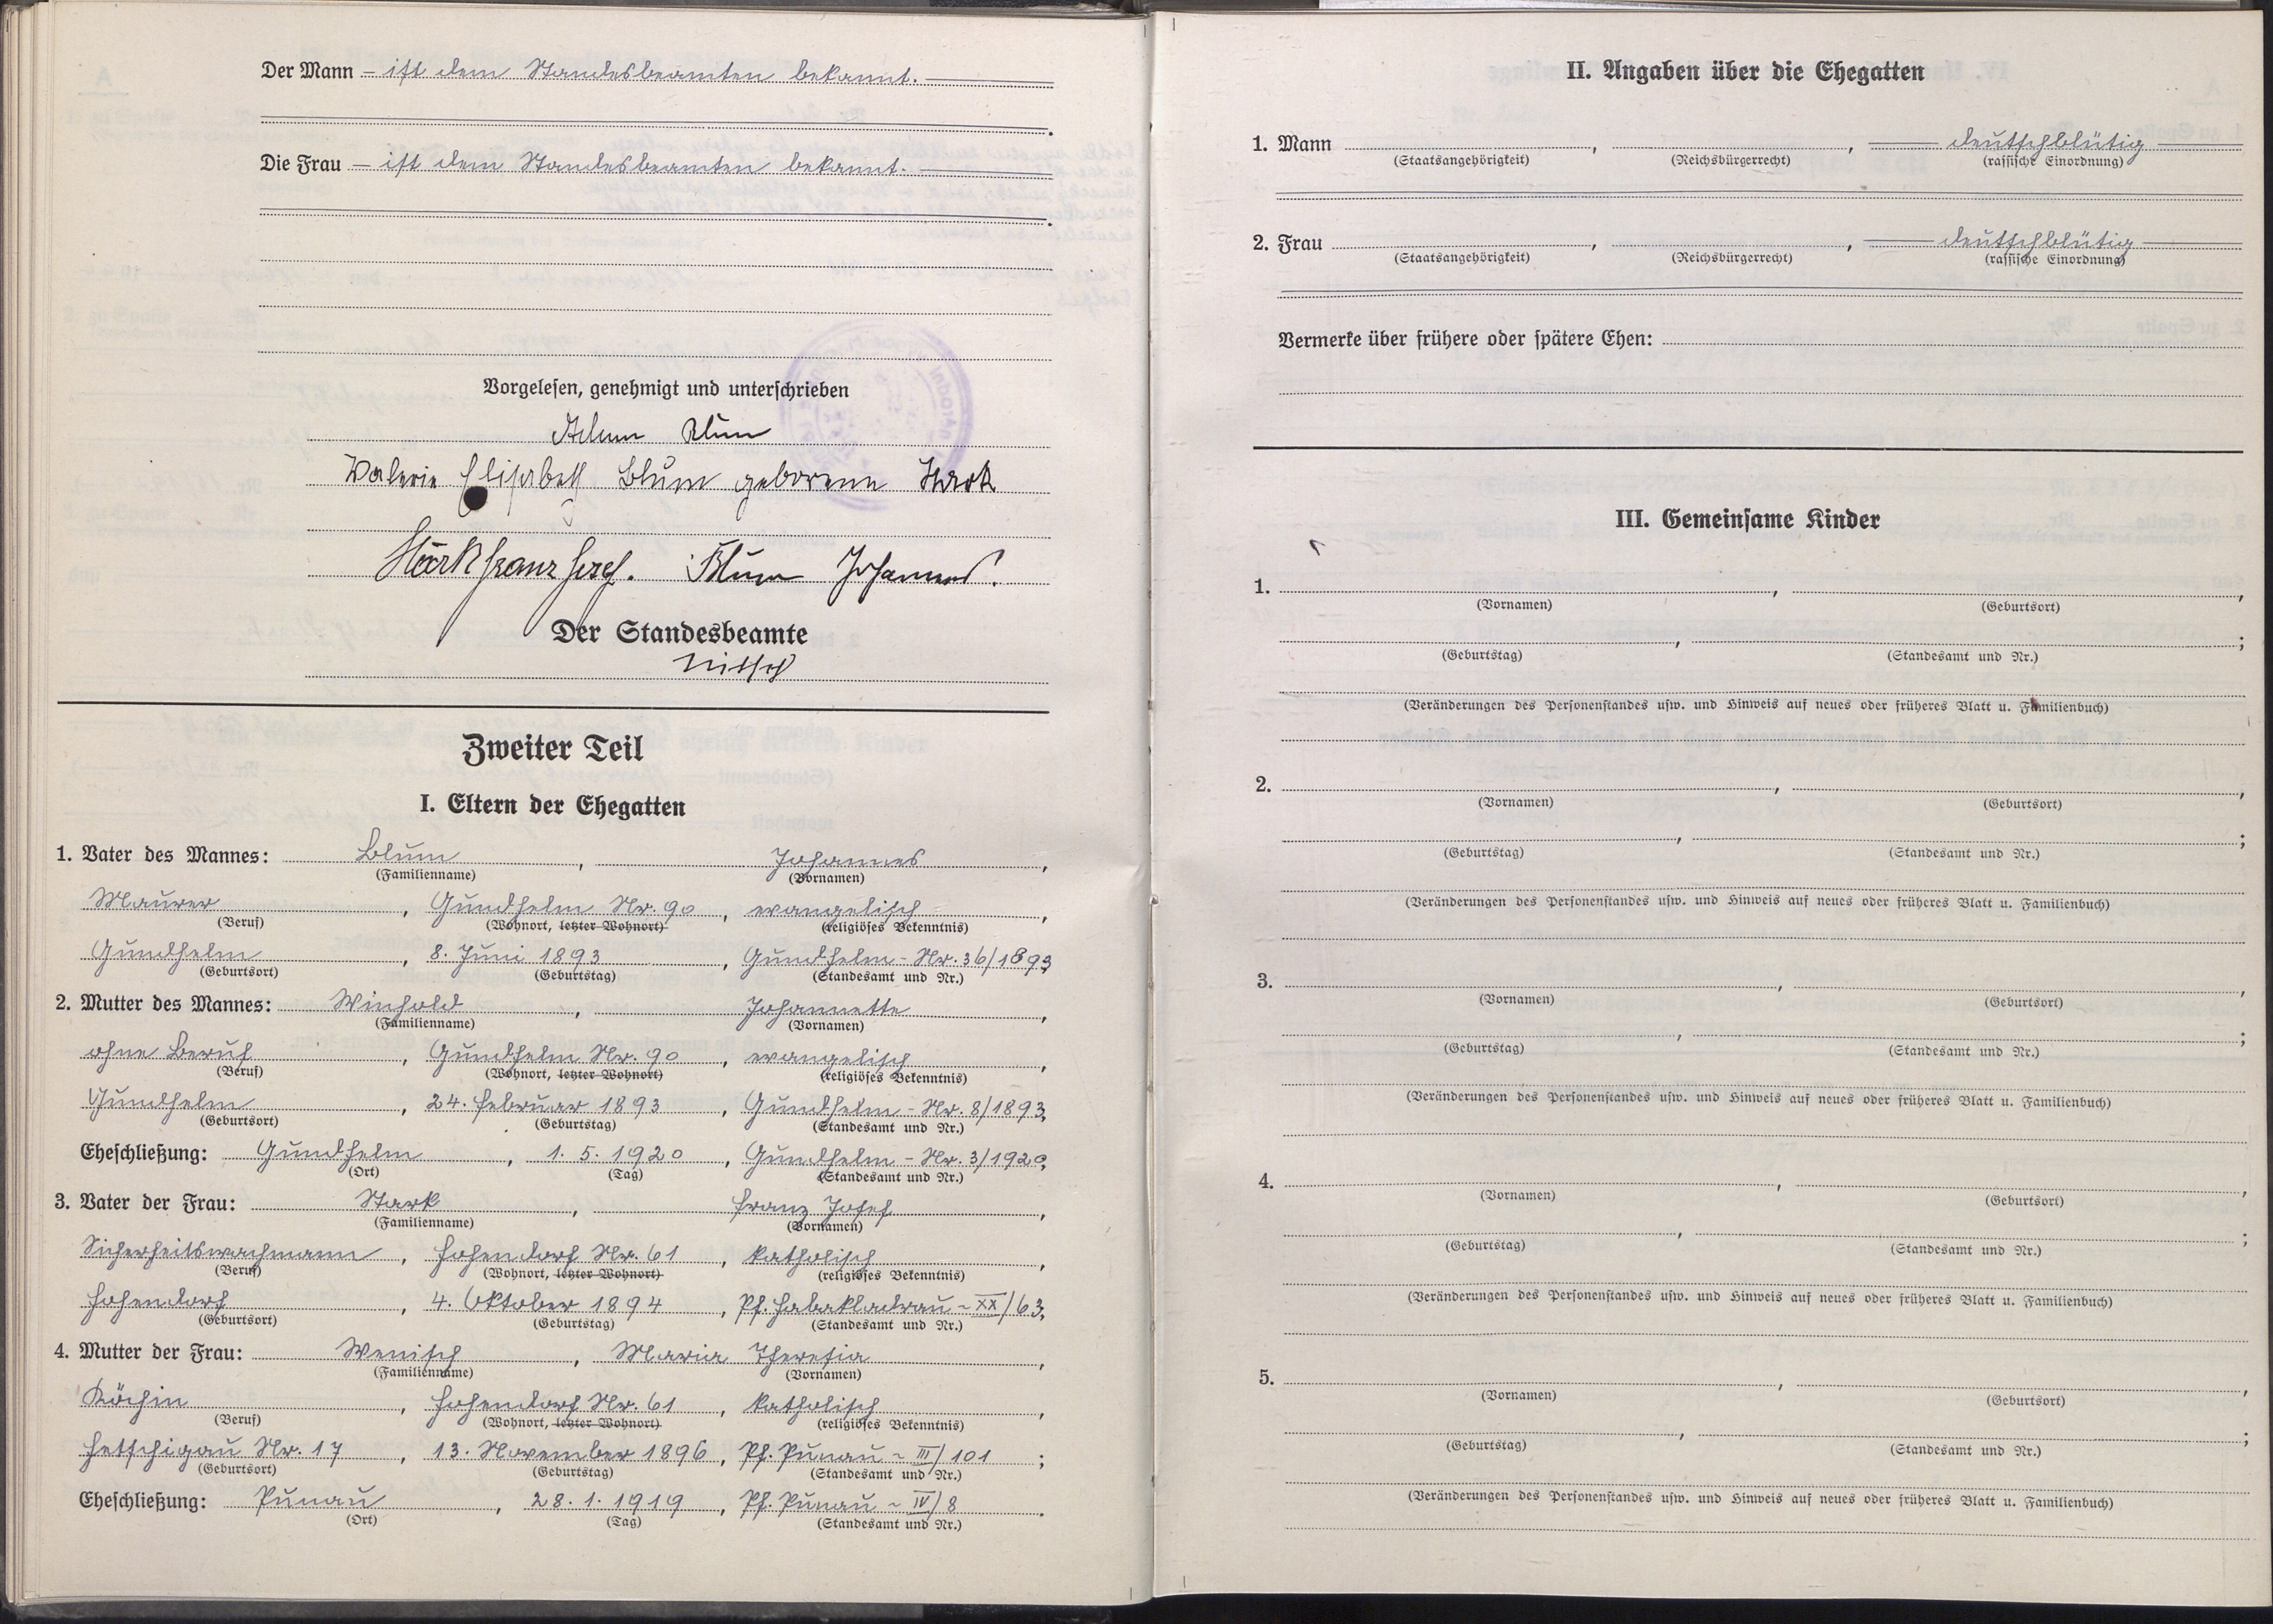 Der Mann – ist dem Standesbeamten bekannt.
Die Frau – ist dem Standesbeamten bekannt.
Vorgelesen, genehmigt und unterschrieben
Adam Blum
Valerie Elisabeth Blum geborene Stark
Stark Franz Josef. Blum Johannes.
Der Standesbeamte
Nitsch
Zweiter Teil
I. Eltern der Ehegatten
1. Vater des Mannes: Blum, Johannes,
(Familienname) (Vornamen)
Maurer, Gundhelm Nr. 90, evangelisch,
(Beruf) (Wohnort, letzter Wohnort) (religiöses Bekenntnis)
Gundhelm, 8. Juni 1893, Gundhelm - Nr. 36/1893
(Geburtsort) (Geburtstag) (Standesamt und Nr.)
2. Mutter des Mannes: Winhold, Johannette,
(Familienname) (Vornamen)
ohne Beruf, Gundhelm Nr. 90, evangelisch,
(Beruf) (Wohnort, letzter Wohnort) (religiöses Bekenntnis)
Gundhelm, 24. Februar 1893, Gundhelm - Nr. 8/1893,
(Geburtsort) (Geburtstag) (Standesamt und Nr.)
Eheschließung: Gundhelm, 1. 5. 1920, Gundhelm - Nr. 3/1920,
(Ort) (Tag) (Standesamt und Nr.)
3. Vater der Frau: Stark, Franz Josef,
(Familienname) (Vornamen)
Sicherheitswachmann, Hohendorf Nr. 61, katholisch,
(Beruf) (Wohnort, letzter Wohnort) (religiöses Bekenntnis)
Hohendorf, 4. Oktober 1894, Pf. Habakladrau - XX/63,
(Geburtsort) (Geburtstag) (Standesamt und Nr.)
4. Mutter der Frau: Wenisch, Maria Theresia,
(Familienname) (Vornamen)
Köchin, Hohendorf Nr. 61, katholisch,
(Beruf) (Wohnort, letzter Wohnort) (religiöses Bekenntnis)
Hetschigau Nr. 17, 13. November 1896, Pf. Punau - III/101;
(Geburtsort) (Geburtstag) (Standesamt und Nr.)
Eheschließung: Punau, 28. 1. 1919, Pf. Punau - IV/8.
(Ort) (Tag) (Standesamt und Nr.)
II. Angaben über die Ehegatten
1. Mann , , deutschblütig
(Staatsangehörigkeit) (Reichsbürgerrecht) (rassische Einordnung)
2. Frau , , deutschblütig
(Staatsangehörigkeit) (Reichsbürgerrecht) (rassische Einordnung)
Vermerke über frühere oder spätere Ehen:
III. Gemeinsame Kinder
1. , ,
(Vornamen) (Geburtsort)
, ;
(Geburtstag) (Standesamt und Nr.)
(Veränderungen des Personenstandes usw. und Hinweis auf neues oder früheres Blatt u. Familienbuch)
2. , ,
(Vornamen) (Geburtsort)
, ;
(Geburtstag) (Standesamt und Nr.)
(Veränderungen des Personenstandes usw. und Hinweis auf neues oder früheres Blatt u. Familienbuch)
3. , ,
(Vornamen) (Geburtsort)
, ;
(Geburtstag) (Standesamt und Nr.)
(Veränderungen des Personenstandes usw. und Hinweis auf neues oder früheres Blatt u. Familienbuch)
4. , ,
(Vornamen) (Geburtsort)
, ;
(Geburtstag) (Standesamt und Nr.)
(Veränderungen des Personenstandes usw. und Hinweis auf neues oder früheres Blatt u. Familienbuch)
5. , ,
(Vornamen) (Geburtsort)
, ;
(Geburtstag) (Standesamt und Nr.)
(Veränderungen des Personenstandes usw. und Hinweis auf neues oder früheres Blatt u. Familienbuch)